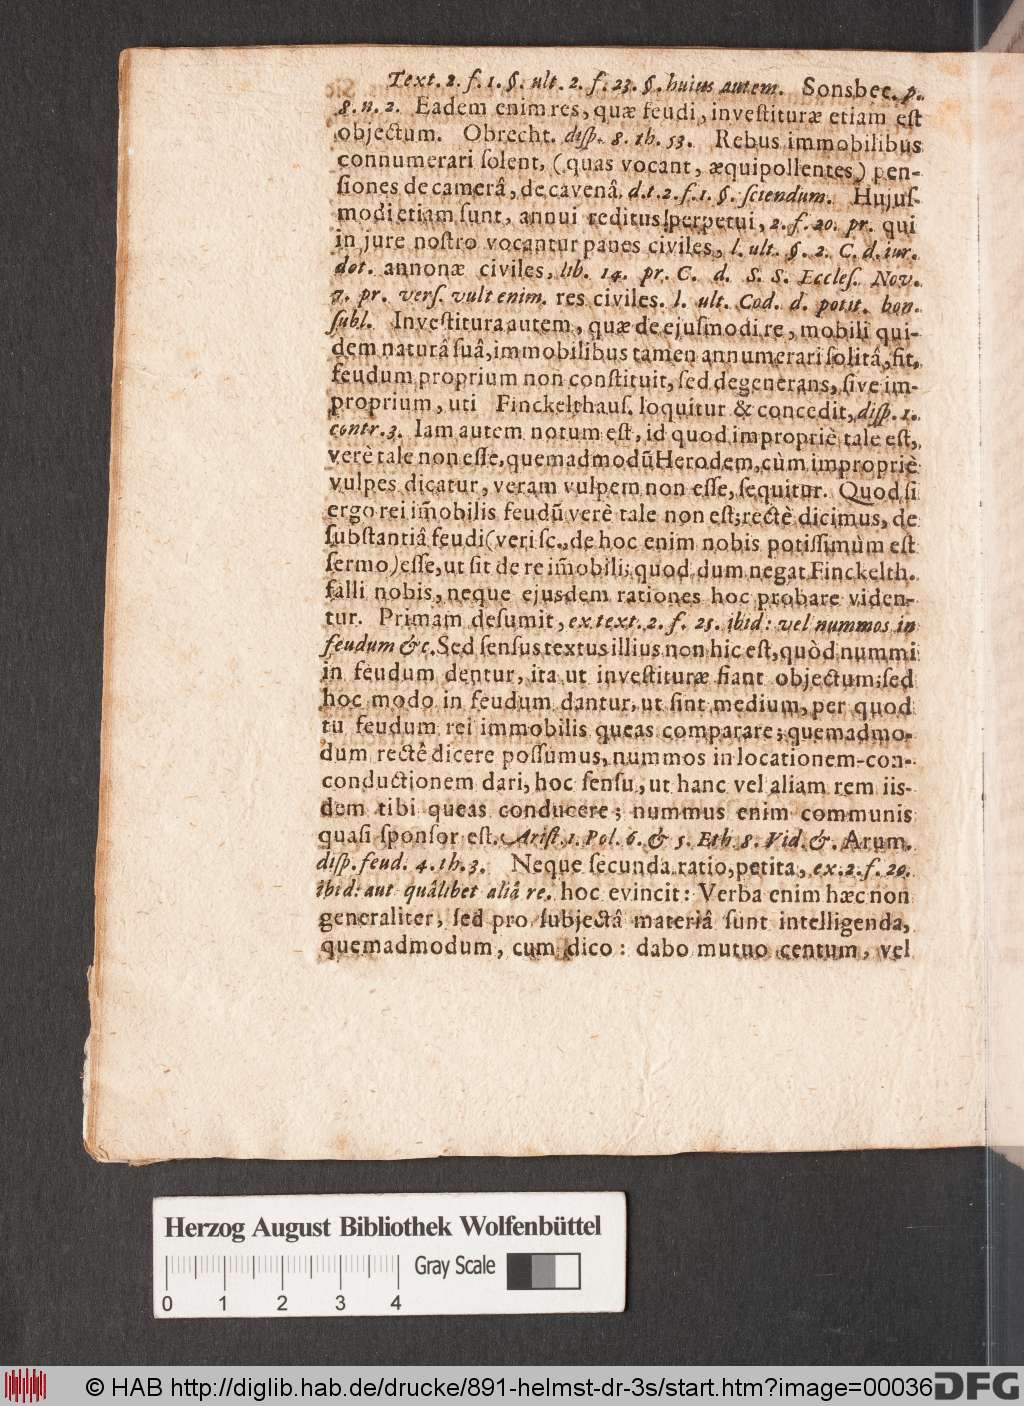 Text. 2. f. 1. §. ult. 2. f. 23. §. huius autem. Sonsbec. p.
8. n. 2. Eadem enim res, quæ feudi, inveſtituræ etiam eſt
objectum. Obrecht. diſp. 8. th. 53. Rebus immobilibus
connumerari ſolent, (quas vocant, æquipollentes) pen-
ſiones de camerâ, de cavenâ. d. t. 2. f. 1. §. ſciendum. Hujuſ-
modi etiam ſunt, annui reditus perpetui, 2. f. 20. pr. qui
in jure noſtro vocantur panes civiles, l. ult. §. 2. C. d. iur.
dot. annonæ civiles, lib. 14. pr. C. d. S. S. Eccleſ. Nov.
7. pr. verſ. vult enim. res civiles. l. ult. Cod. d. potit. bon.
ſubl. Inveſtitura autem, quæ de ejuſmodi re, mobili qui-
dem naturâ ſuâ, immobilibus tamen annumerari ſolitâ, fit,
feudum proprium non conſtituit, ſed degenerans, ſive im-
proprium, uti Finckelthauſ. loquitur & concedit, diſp. 1.
contr. 3. Iam autem notum eſt, id quod impropriè tale eſt,
verè tale non eſſe, quemadmodũ Herodem, cùm impropriè
vulpes dicatur, veram vulpem non eſſe, ſequitur. Quod ſi
ergo rei im̃obilis feudũ verè tale non eſt; rectè dicimus, de
ſubſtantiâ feudi (veri ſc., de hoc enim nobis potiſſimùm eſt
ſermo) eſſe, ut ſit de re im̃obili; quod dum negat Finckelth.
falli nobis, neque ejusdem rationes hoc probare viden-
tur. Primam deſumit, ex text. 2. f. 25. ibid: vel nummos in
feudum &c. Sed ſenſus textus illius non hic eſt, quòd nummi
in feudum dentur, ita ut inveſtituræ fiant objectum; ſed
hoc modo in feudum dantur, ut ſint medium, per quod
tu feudum rei immobilis queas comparare; quemadmo-
dum rectè dicere poſſumus, nummos in locationem-con-
conductionem dari, hoc ſenſu, ut hanc vel aliam rem iis-
dem tibi queas conducere; nummus enim communis
quaſi ſponſor eſt. Ariſt. 1. Pol. 6. & 5. Eth. 8. Vid. &. Arum.
diſp. feud. 4. th. 3. Neque ſecunda ratio, petita, ex. 2. f. 20.
ibid: aut quâlibet aliâ re. hoc evincit: Verba enim hæc non
generaliter, ſed pro ſubjectâ materiâ ſunt intelligenda,
quemadmodum, cum dico: dabo mutuo centum, vel
Herzog August Bibliothek Wolfenbüttel
Gray Scale
0 1 2 3 4
© HAB http://diglib.hab.de/drucke/891-helmst-dr-3s/start.htm?image=00036
DFG